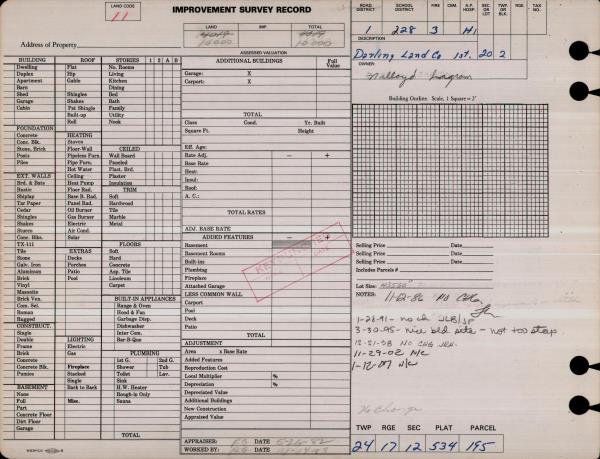 LAND CODE
11
IMPROVEMENT SURVEY RECORD
LAND IMP. TOTAL
10,000 10,000
Address of Property
ASSESSED VALUATION
ROAD DISTRICT SCHOOL DISTRICT FIRE CEM. A.P. HOSP. SEC. OR LOT TWP. OR BLK. RGE TAX NO.
1 228 3 H1
DESCRIPTION
Darling Land Co 1st. 20 2
OWNER
Building Outline. Scale, 1 Square = 2'
BUILDING ROOF STORIES 1 2 A B
Dwelling Flat No. Rooms
Duplex Hip Living
Apartment Gable Kitchen
Barn Dining
Shed Shingles Bed
Garage Shakes Bath
Cabin Pat Shingle Family
Built-up Utility
Roll Nook
FOUNDATION
Concrete HEATING
Conc. Blk. Stoves
Stone, Brick Floor-Wall CEILED
Posts Pipeless Furn. Wall Board
Piles Pipe Furn. Paneled
Hot Water Plast. Brd.
EXT. WALLS Ceiling Plaster
Brd. & Bats Heat Pump Insulation
Rustic Floor Rad. TRIM
Shiplap Base B. Rad. Soft
Tar Paper Panel Rad. Hardwood
Cedar Oil Burner Tile
Shingles Gas Burner Marble
Shakes Electric Metal
Stucco Air Cond.
Conc. Blks. Solar FLOORS
TX-111 Soft
Tile EXTRAS Hard
Stone Decks Concrete
Galv. Iron Porches Asp. Tile
Aluminum Patio Linoleum
Brick Pool Carpet
Vinyl
Masonite
Brick Ven. BUILT-IN APPLIANCES
Com. Sel. Range & Oven
Roman Hood & Fan
Rugged Garbage Disp.
CONSTRUCT. Dishwasher
Single Inter Com.
Double LIGHTING Bar-B-Que
Frame Electric
Brick Gas PLUMBING
Concrete 1st G. 2nd G.
Concrete Blk. Fireplace Shower Tub
Pumice Stacked Toilet Lav.
Single Sink
BASEMENT Back to Back H.W. Heater
None Rough-in Only
Full Misc. Sauna
Part
Concrete Floor
Dirt Floor
Garage
TOTAL
ADDITIONAL BUILDINGS Full Value
Garage: X
Carport: X
TOTAL
Class Cond. Yr. Built
Square Ft. Height
Eff. Age:
Rate Adj. − +
Base Rate
Heat:
Insul:
Roof:
A. C.:
TOTAL RATES
ADJ. BASE RATE
ADDED FEATURES − +
Basement
Basement Rooms
Built-ins
Plumbing
Fireplace
Attached Garage
LESS COMMON WALL
Carport
Porch
Deck
Patio
TOTAL
ADJUSTMENT
Area x Base Rate
Added Features
Reproduction Cost
Local Multiplier %
Depreciation %
Depreciated Value
Additional Buildings
New Construction
Appraised Value
APPRAISER: DATE
WORKED BY: DATE
Selling Price Date
Selling Price Date
Selling Price Date
Includes Parcels #
Lot Size:
NOTES:
1-28-91 - no ch JLB/JP
3-30-95 - nice bld site - not too steep
NO CHG
11-29-02 N/C
1-12-07 N/C
No Change
TWP RGE SEC PLAT PARCEL
24 17 12 534 195